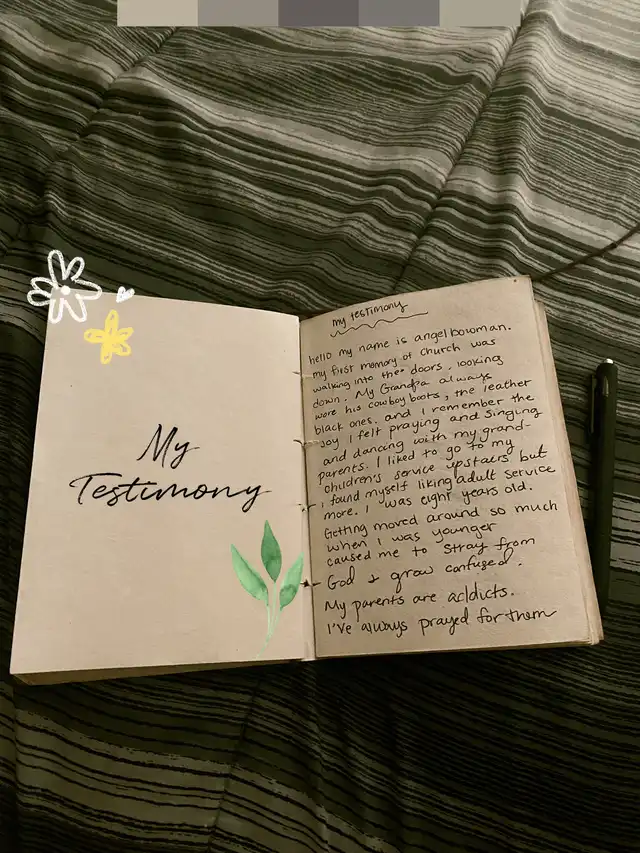 My
Testimony
my testimony
hello my name is angel bowman.
my first memory of church was
walking into the doors, looking
down. My Grandpa always
wore his cowboy boots, the leather
black ones. and I remember the
joy I felt praying and singing
and dancing with my grand-
parents. I liked to go to my
children's service upstairs but
I found myself liking adult service
more. I was eight years old.
Getting moved around so much
when I was younger
caused me to stray from
God & grow confused.
My parents are addicts.
I've always prayed for them